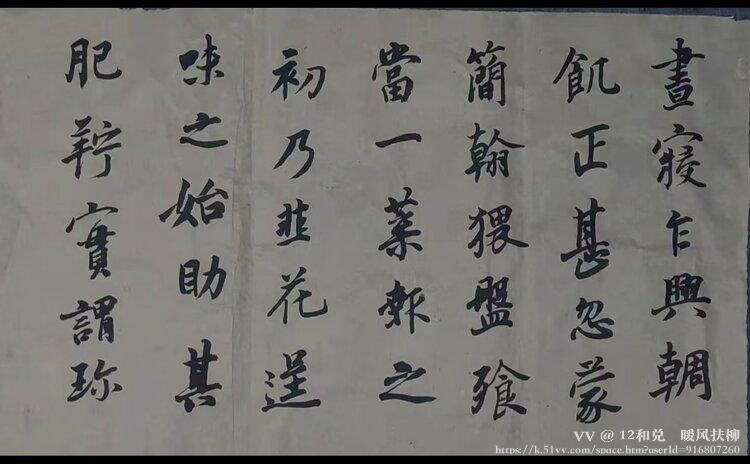 晝寢乍興輖
飢正甚忽蒙
簡翰猥盤飧
當一葉報之
初乃韭花逞
味之始助其
肥羜實謂珍
VV @ 12和兑 暖风扶柳
https://k.51vv.com/space.htm?userId=916807260